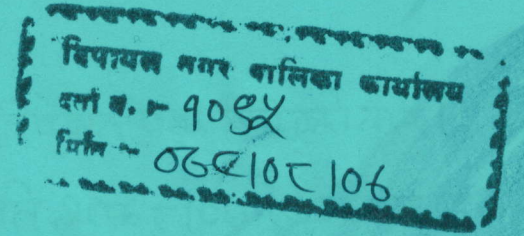 दिपायल नगर पालिका कार्यालय
दर्ता नं. :- १०९५
मिति :- ०६८।०८।०६